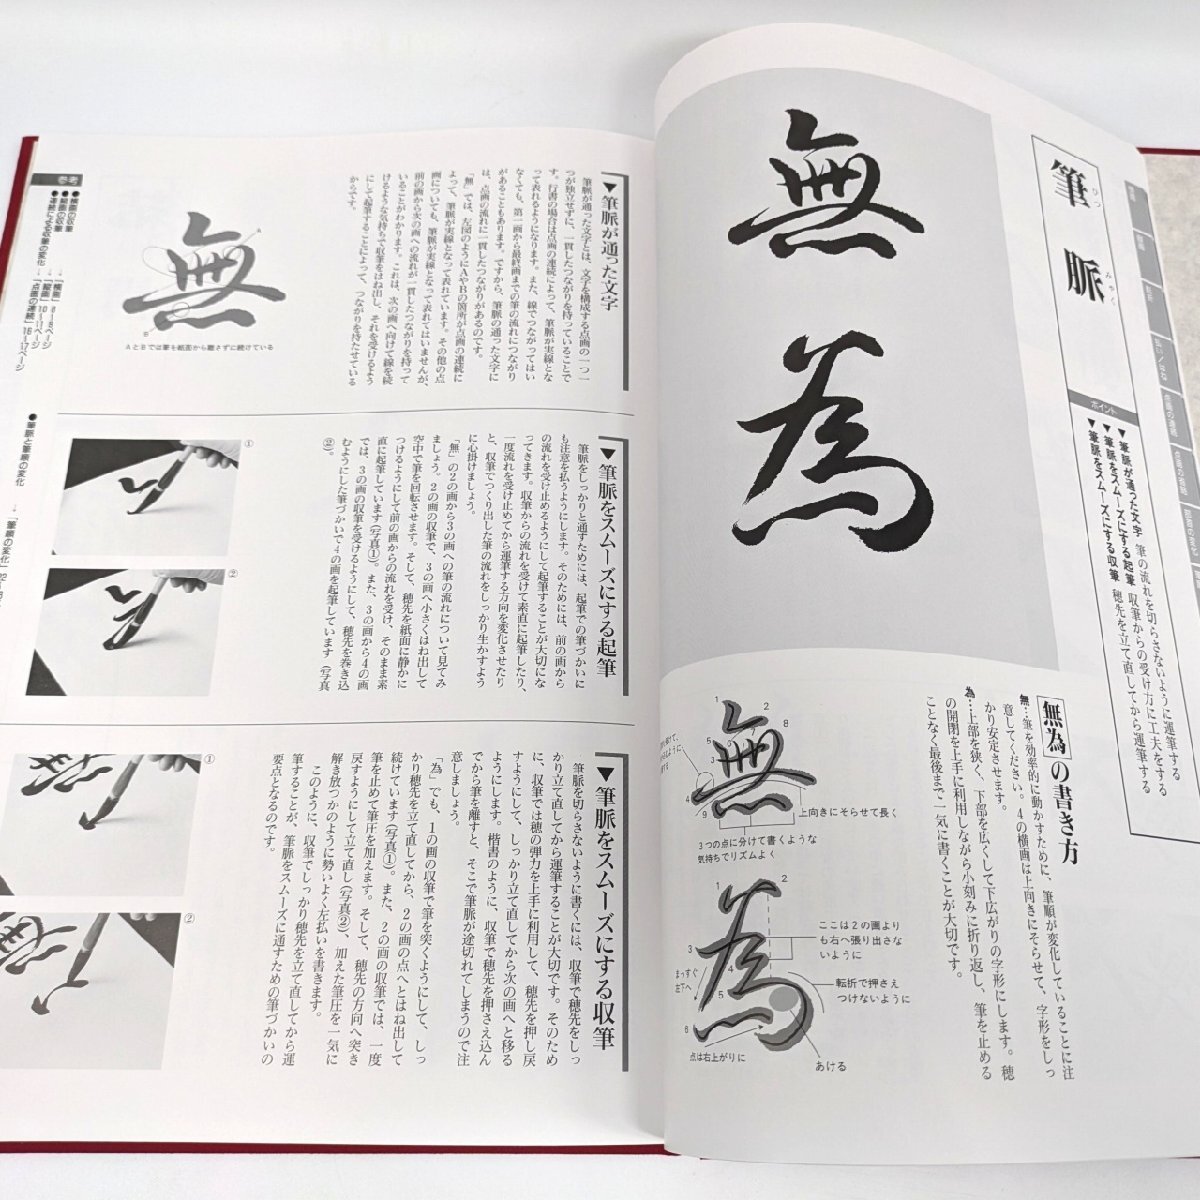 筆脈
ひつ
みゃく
ポイント
▼筆脈が通った文字 筆の流れを切らさないように運筆する
▼筆脈をスムーズにする起筆 収筆からの受け方に工夫をする
▼筆脈をスムーズにする収筆 穂先を立て直してから運筆する
無為
無為の書き方
無…筆を効率的に動かすために、筆順が変化していることに注
意してください。4の横画は上向きにそらせて、字形をしっ
かり安定させます。
為…上部を狭く、下部を広くして下広がりの字形にします。穂
の開閉を上手に利用しながら小刻みに折り返し、筆を止める
ことなく最後まで一気に書くことが大切です。
上向きにそらせて長く
3つの点に分けて書くような
気持ちでリズムよく
ここは2の画より
も右へ張り出さな
いように
転折で押さえ
つけないように
まっすぐ
左下へ
点は右上がりに
あける
▼筆脈が通った文字
筆脈が通った文字とは、文字を構成する点画の一つ一
つが独立せずに、一貫したつながりを持っていることで
す。行書の場合は点画の連続によって、筆脈が実線とな
って表れるようになります。また、線でつながってはい
なくても、第一画から最終画までの筆の流れにつながり
があることもあります。ですから、筆脈の通った文字に
は、点画の流れに一貫したつながりがあるのです。
「無」では、左図のようにAやBの箇所が点画の連続に
よって、筆脈が実線となって表れています。その他の点
画についても、筆脈が実線となって表れてはいませんが、
前の画から次の画への流れが一貫したつながりを持って
いることがわかります。これは、次の画へ向けて線を続
けるような気持ちで収筆をはね出し、それを受けるよう
にして起筆することによって、つながりを持たせている
からです。
無
A
B
AとBでは筆を紙面から離さずに続けている
▼筆脈をスムーズにする起筆
筆脈をしっかりと通すためには、起筆での筆づかいに
も注意を払うようにします。そのためには、前の画から
の流れを受け止めるようにして起筆することが大切にな
ってきます。収筆からの流れを受けて素直に起筆したり、
一度流れを受け止めてから運筆する方向を変化させたり
と、収筆でつくり出した筆の流れをしっかり生かすよう
に心掛けましょう。
「無」の2の画から3の画への筆の流れについて見てみ
ましょう。2の画の収筆で、3の画へ小さくはね出して
空中で筆を回転させます。そして、穂先を紙面に静かに
つけるようにして前の画からの流れを受け、そのまま素
直に起筆しています(写真①)。また、3の画から4の画
では、3の画の収筆を受けるようにして、穂先を巻き込
むようにした筆づかいで4の画を起筆しています(写真
②)。
①
②
▼筆脈をスムーズにする収筆
筆脈を切らさないように書くには、収筆で穂先をしっ
かり立て直してから運筆することが大切です。そのため
に、収筆では穂の弾力を上手に利用して、穂先を押し戻
すようにして、しっかり立て直してから次の画へと移る
ようにします。楷書のように、収筆で穂先を押さえ込ん
でから筆を離すと、そこで筆脈が途切れてしまうので注
意しましょう。
「為」でも、1の画の収筆で筆を突くようにして、しっ
かり穂先を立て直してから、2の画の点へとはね出して
続けています(写真①)。また、2の画の収筆では、一度
筆を止めて筆圧を加えます。そして、穂先の方向へ突き
戻すようにして立て直し(写真②)、加えた筆圧を一気に
解き放つかのように勢いよく左払いを書きます。
このように、収筆でしっかり穂先を立て直してから運
筆することが、筆脈をスムーズに通すための筆づかいの
要点となるのです。
①
②
参考
●横画の収筆 → 「横画」6〜8ページ
●縦画の収筆 → 「縦画」10〜11ページ
●連続による収筆の変化 → 「点画の連続」16〜17ページ
●筆脈と筆順の変化 → 「筆順の変化」